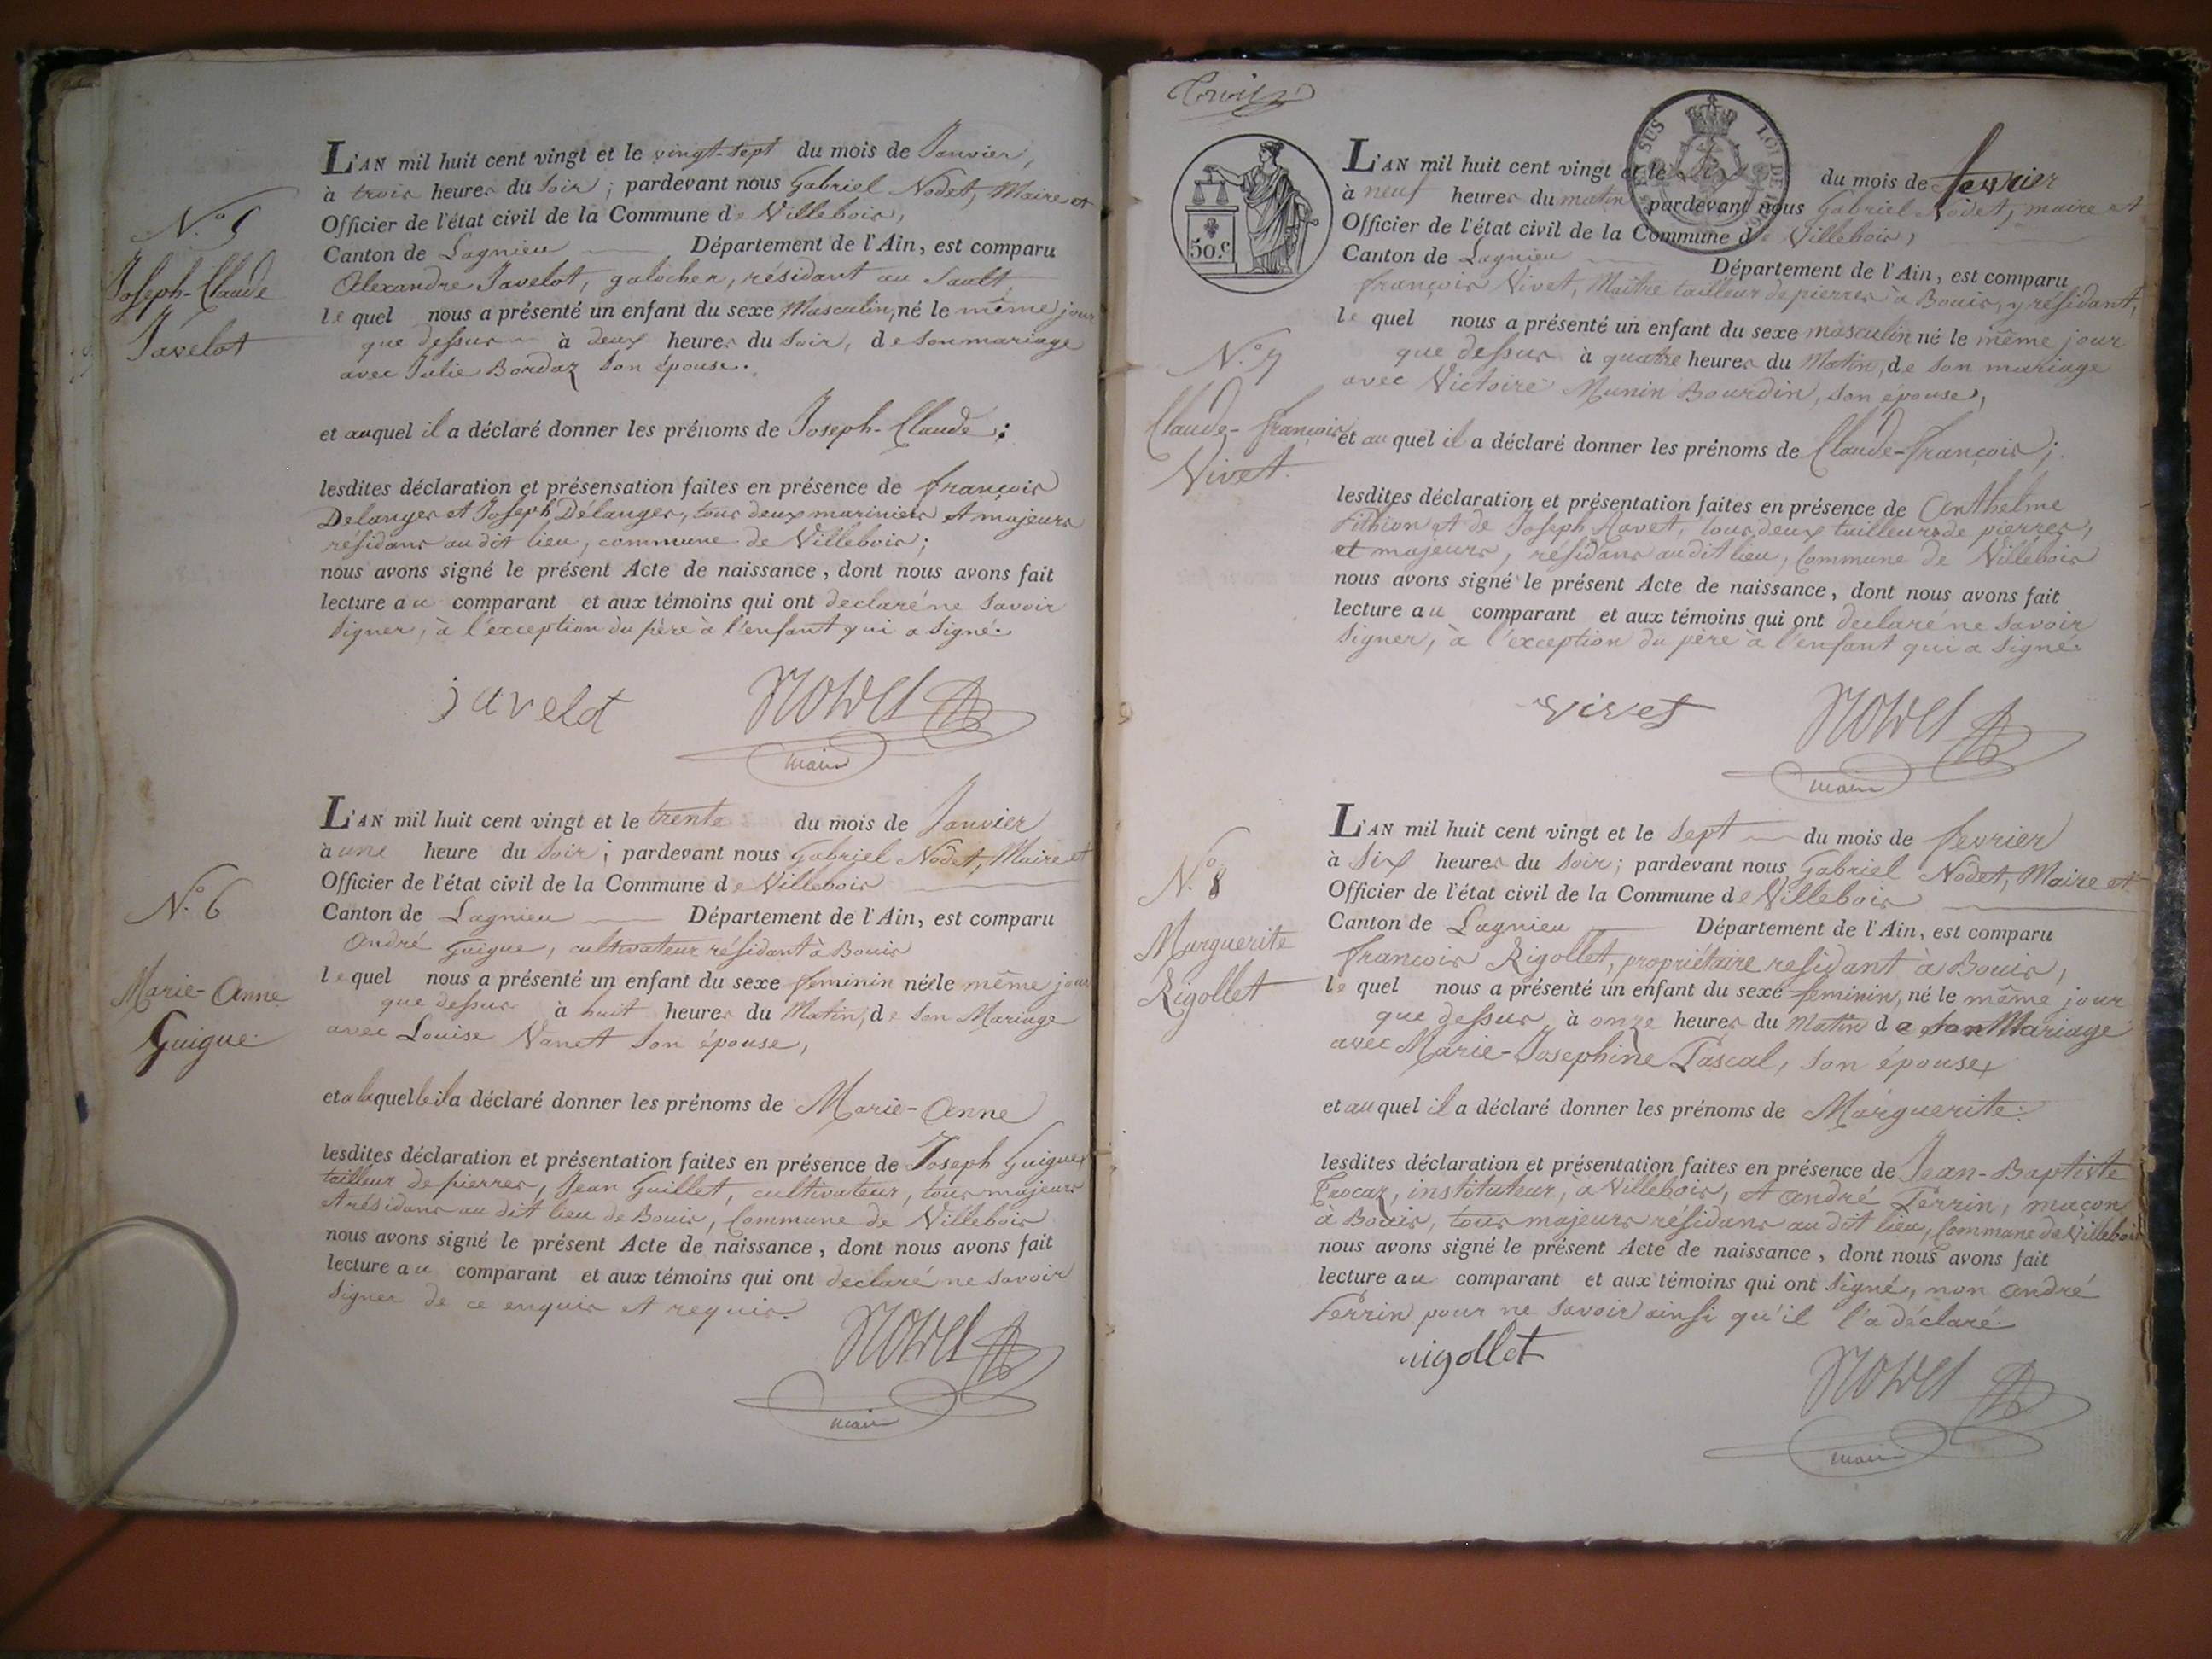 L'AN mil huit cent vingt et le vingt-sept du mois de Janvier,
à trois heures du soir ; pardevant nous Gabriel Nodet, Maire et
Officier de l'état civil de la Commune de Villebois,
Canton de Lagnieu Département de l'Ain, est comparu
Alexandre Javelot, galocher, résidant au Sault,
lequel nous a présenté un enfant du sexe Masculin, né le même jour
que dessus à deux heures du soir, de son mariage
avec Julie Bordaz son épouse.
N.º 5
Joseph-Claude
Javelot
et auquel il a déclaré donner les prénoms de Joseph-Claude ;
lesdites déclaration et présensation faites en présence de françois
Delanger et Joseph Délanger, tous deux mariniers et majeurs
résidans au dit lieu, commune de Villebois ;
nous avons signé le présent Acte de naissance, dont nous avons fait
lecture au comparant et aux témoins qui ont declaré ne savoir
signer, à l'exception du père à l'enfant qui a signé.
javelot
Nodet
maire
L'AN mil huit cent vingt et le trente du mois de Janvier
à une heure du soir ; pardevant nous Gabriel Nodet, Maire et
Officier de l'état civil de la Commune de Villebois
Canton de Lagnieu Département de l'Ain, est comparu
André Guigue, cultivateur résidant à Bouis
lequel nous a présenté un enfant du sexe feminin née le même jour
que dessus à huit heures du Matin, de son Mariage
avec Louise Vanet son épouse,
N.º 6
Marie-Anne
Guigue
et a laquelle il a déclaré donner les prénoms de Marie-Anne
lesdites déclaration et présentation faites en présence de Joseph Guigue,
tailleur de pierres, Jean Guillet, cultivateur, tous majeurs
et résidans au dit lieu de Bouis, Commune de Villebois
nous avons signé le présent Acte de naissance, dont nous avons fait
lecture au comparant et aux témoins qui ont declaré ne savoir
signer de ce enquis et requis.
Nodet
maire
SUS LOI DE
50.c
L'AN mil huit cent vingt et le du mois de fevrier
à neuf heures du matin pardevant nous Gabriel Nodet, maire et
Officier de l'état civil de la Commune de Villebois,
Canton de Lagnieu Département de l'Ain, est comparu
françois Vivet, Maître tailleur de pierres à Bouis, y résidant,
le quel nous a présenté un enfant du sexe masculin né le même jour
que dessus à quatre heures du Matin, de son mariage
avec Victoire Munin Bourdin, son épouse,
N.º 7
Claude-françois
Vivet.
et au quel il a déclaré donner les prénoms de Claude-françois ;
lesdites déclaration et présentation faites en présence de Anthelme
Pithion et de Joseph Ravet, tous deux tailleurs de pierres,
et majeurs, résidans au dit lieu, Commune de Villebois
nous avons signé le présent Acte de naissance, dont nous avons fait
lecture au comparant et aux témoins qui ont declaré ne savoir
signer, à l'exception du père à l'enfant qui a signé.
vivet
Nodet
maire
L'AN mil huit cent vingt et le sept du mois de fevrier
à six heures du soir ; pardevant nous Gabriel Nodet, Maire et
Officier de l'état civil de la Commune de Villebois
Canton de Lagnieu Département de l'Ain, est comparu
françois Rigollet, propriétaire residant à Bouis,
le quel nous a présenté un enfant du sexe feminin, né le même jour
que dessus à onze heures du Matin de son Mariage
avec Marie-Josephine Pascal, son épouse,
N.º 8
Marguerite
Rigollet
et au quel il a déclaré donner les prénoms de Marguerite.
lesdites déclaration et présentation faites en présence de Jean-Baptiste
Trocaz, instituteur, à Villebois, et André Perrin, maçon
à Bouis, tous majeurs résidans au dit lieu, Commune de Villebois
nous avons signé le présent Acte de naissance, dont nous avons fait
lecture au comparant et aux témoins qui ont signé, non André
Perrin pour ne savoir ainsi qu'il l'a déclaré.
rigollet
Nodet
maire